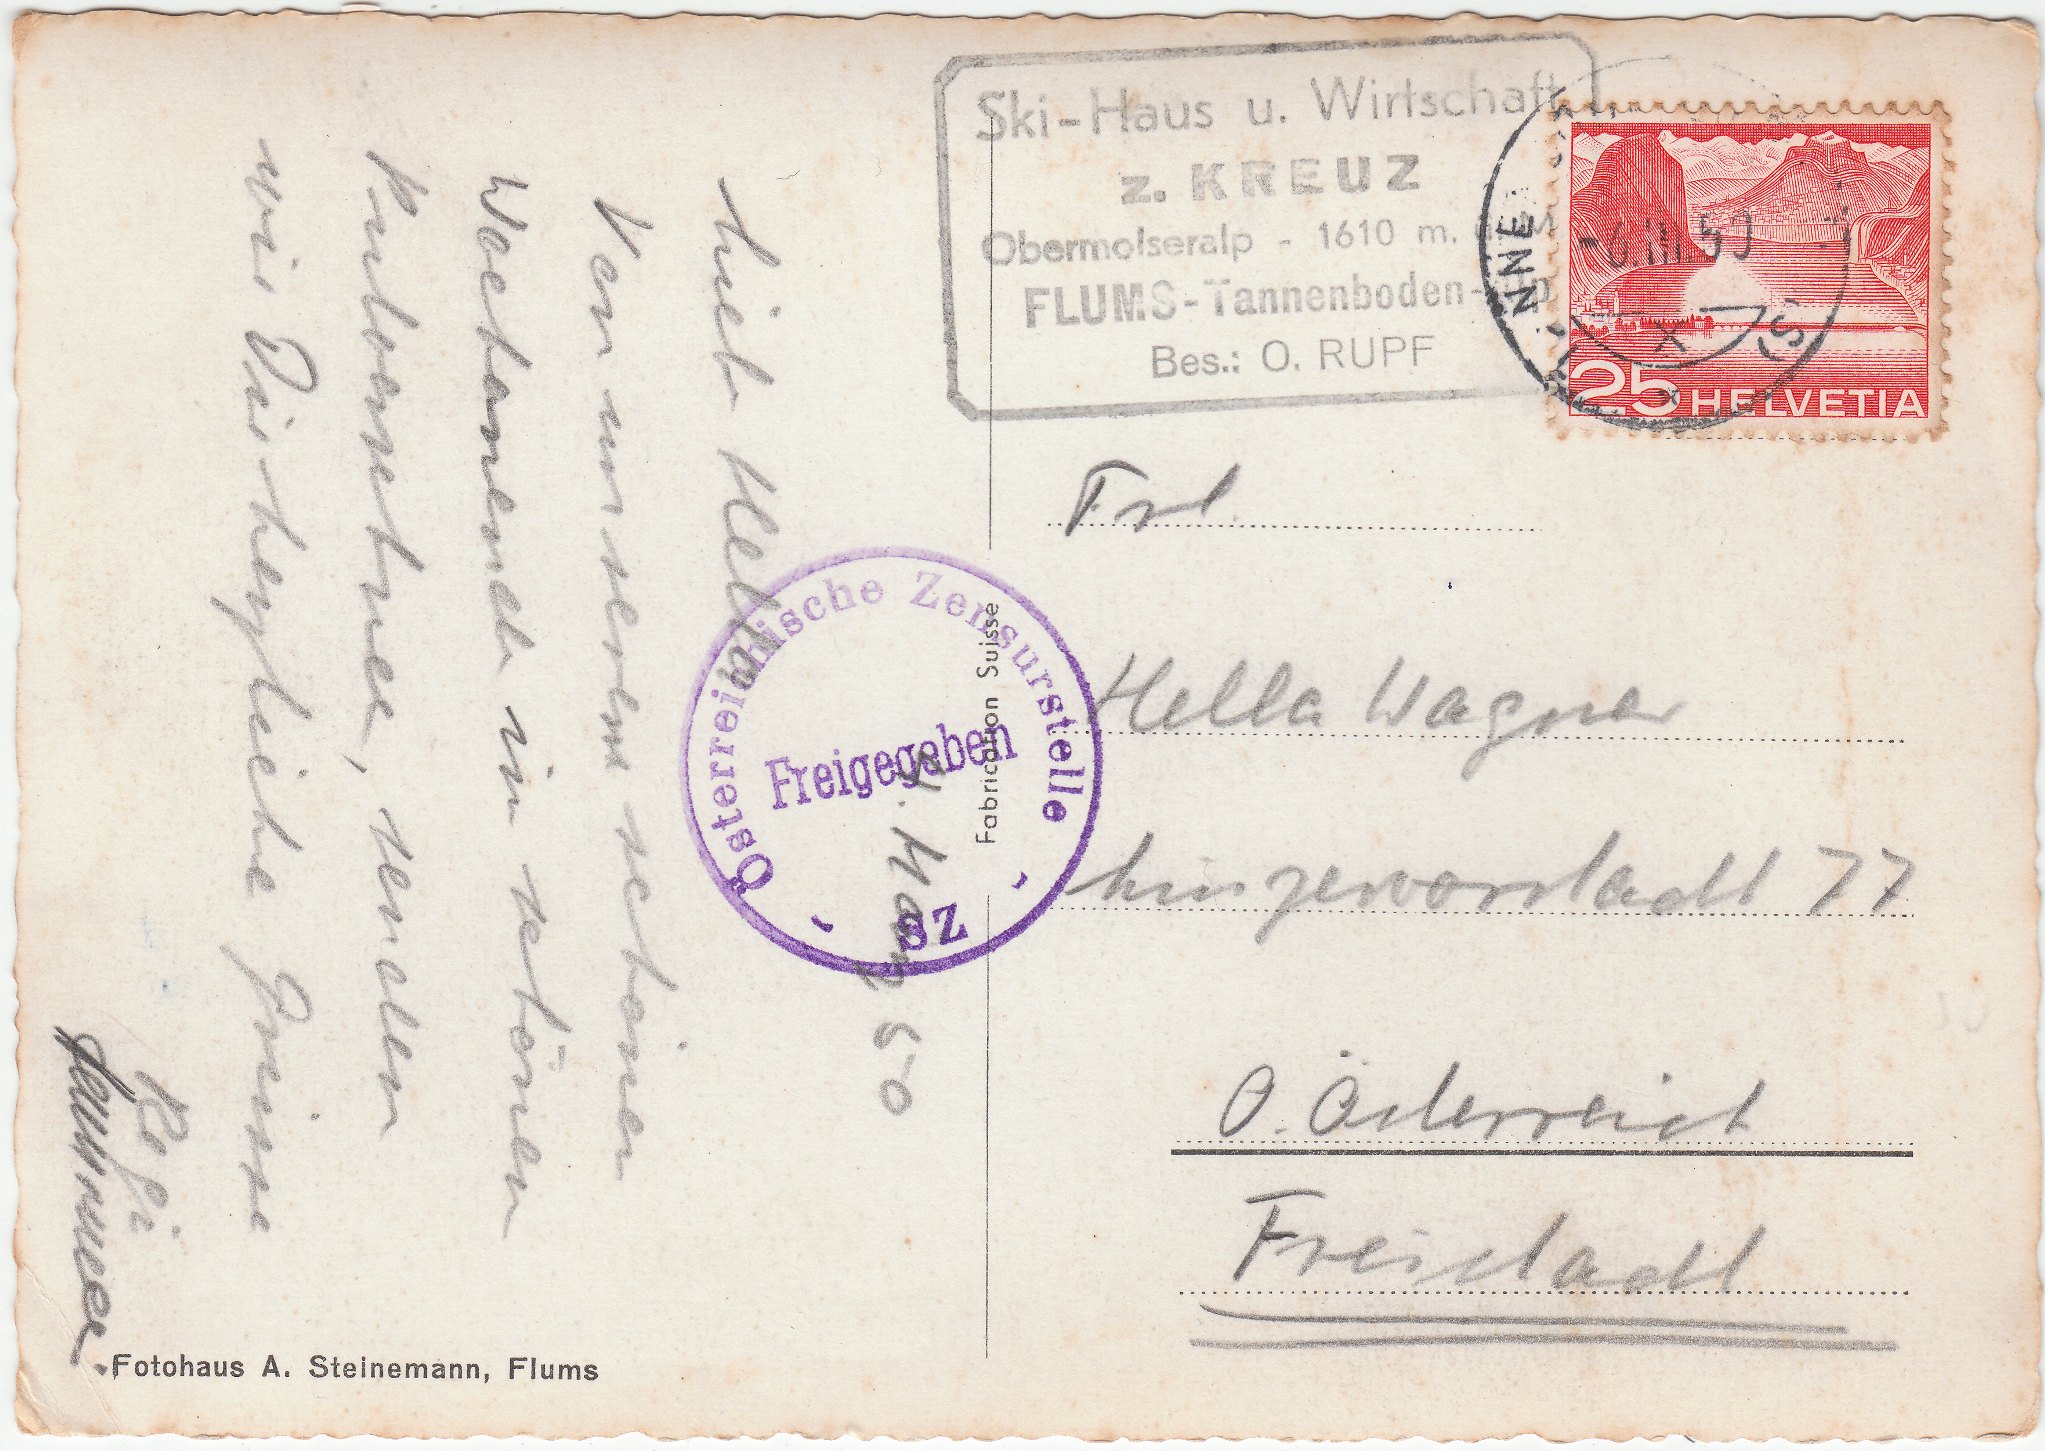 Ski-Haus u. Wirtschaft
z. KREUZ
Obermolseralp - 1610 m.
FLUMS-Tannenboden-Alp
Bes.: O. RUPF
NNE
-6.III.50
X
25 HELVETIA
Österreichische Zensurstelle
Freigegaben
SZ
Fabrication Suisse
4. März 50
Lieb Hella
Von unserem schönen
Wochenende im schönen
Pulverschnee, senden
wir Dir herzliche Grüsse
Frl.
Hella Wagner
Linzervorstadt 77
O. Österreich
Freistadt
Fotohaus A. Steinemann, Flums